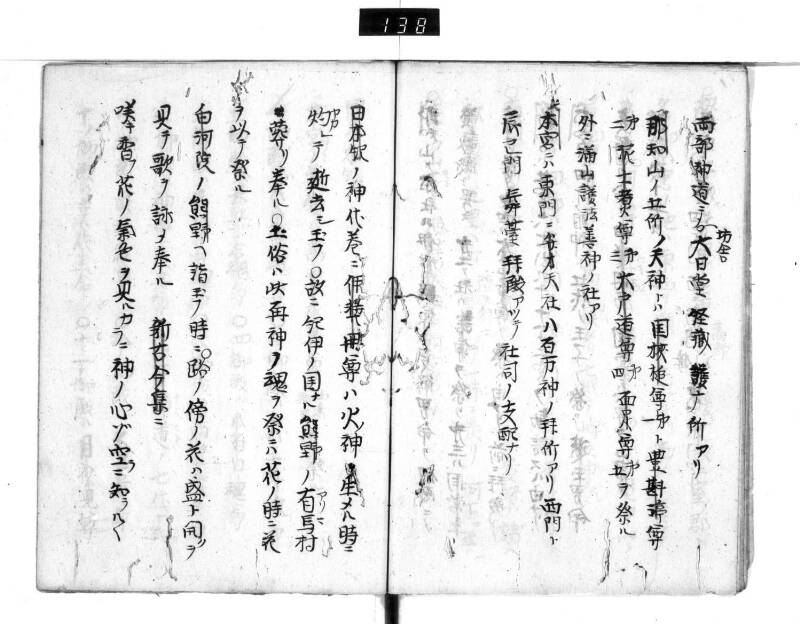 138
両部神道ニ而大日堂経蔵ノ護广所アリ
坊舎
那知山イ五所ノ天神トハ国狭槌尊一ト豊斟渟尊
二泥土煮尊三大戸道尊四面足尊五ヲ祭ル
外ニ満山護法善神ノ社アリ
本宮ニハ東門ニ弁才天社八百万神ノ拝所アリ西門ト
辰巳門長床拝殿アツテ社司ノ支配ナリ
日本紀ノ神代巻ニ伊弉冊尊ハ火神ヲ生メル時ニ
灼レテ逝去シ玉フ〇故ニ紀伊ノ国ナル熊野ノ有馬村
ニ葬リ奉ル〇土俗ハ此神ノ魂ヲ祭ニハ花ノ時ニ花
ヲ以テ祭ル
白河院ノ熊野ヘ詣玉フ時ニ〇路ノ傍ノ花ハ盛ト開ヲ
見テ歌ヲ詠ナ奉ル 新古今集ニ
咲キ香花ノ氣色ヲ見ルカラニ神ノ心ゾ空ニ知ラルヽ